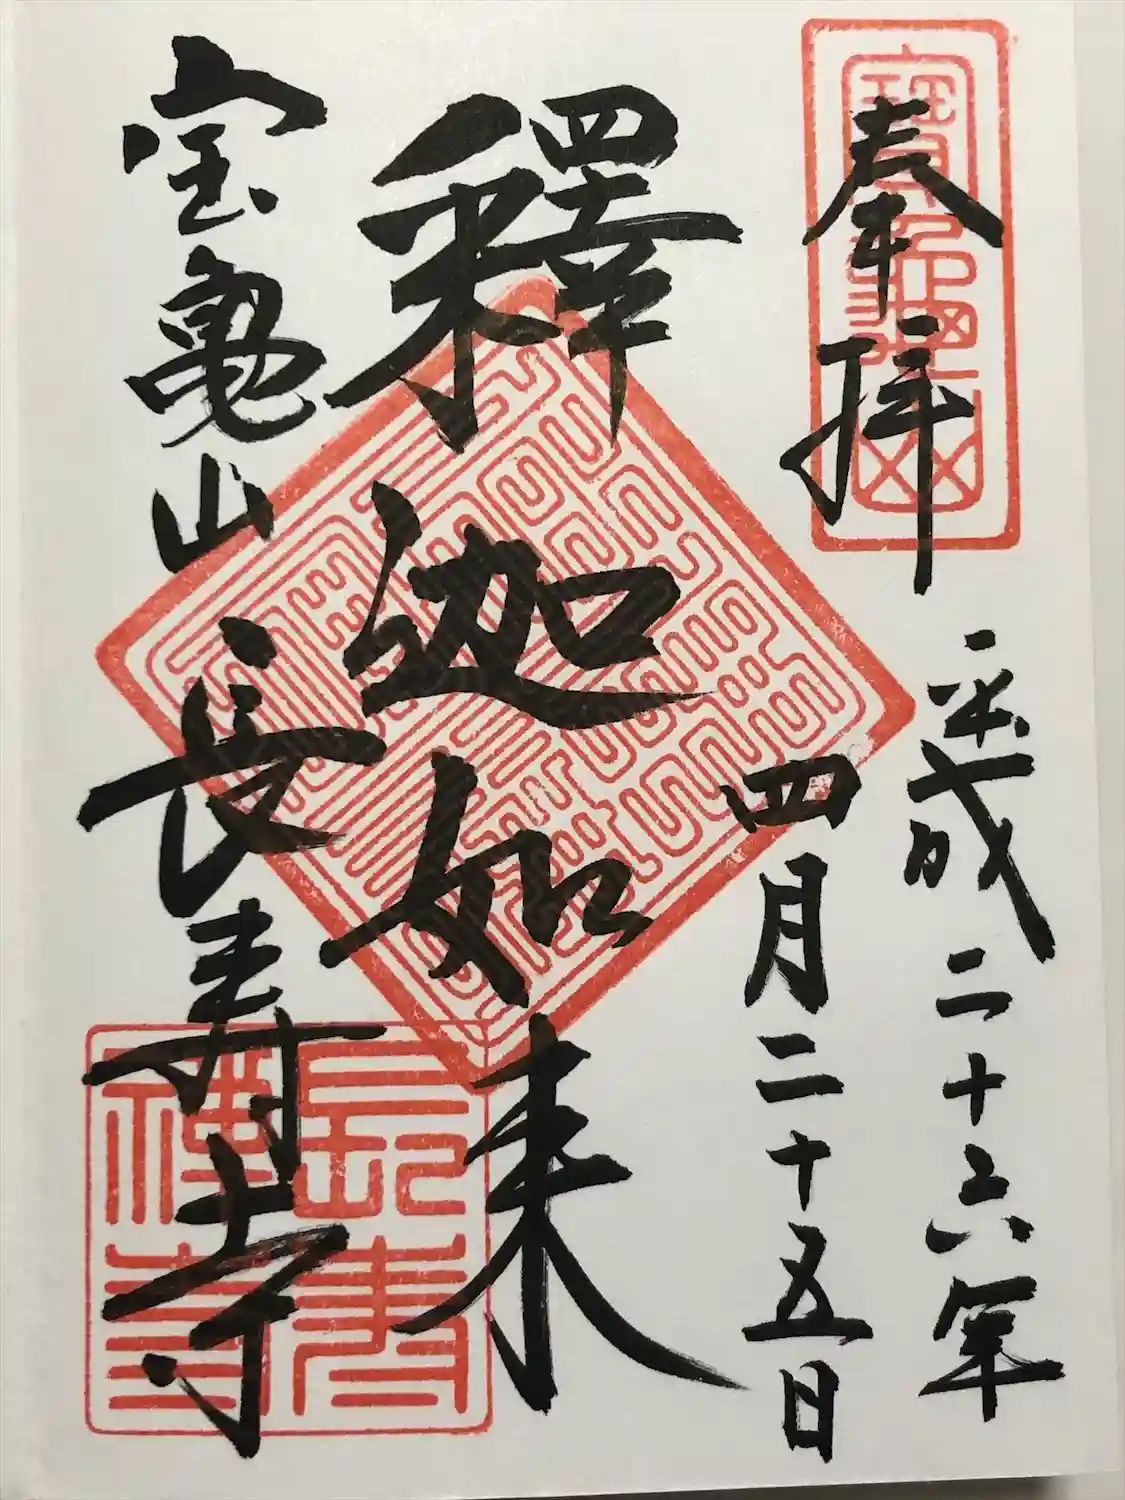 奉拝
平成二十六年
四月二十五日
釋迦如来
宝亀山長寿寺
長壽禅寺